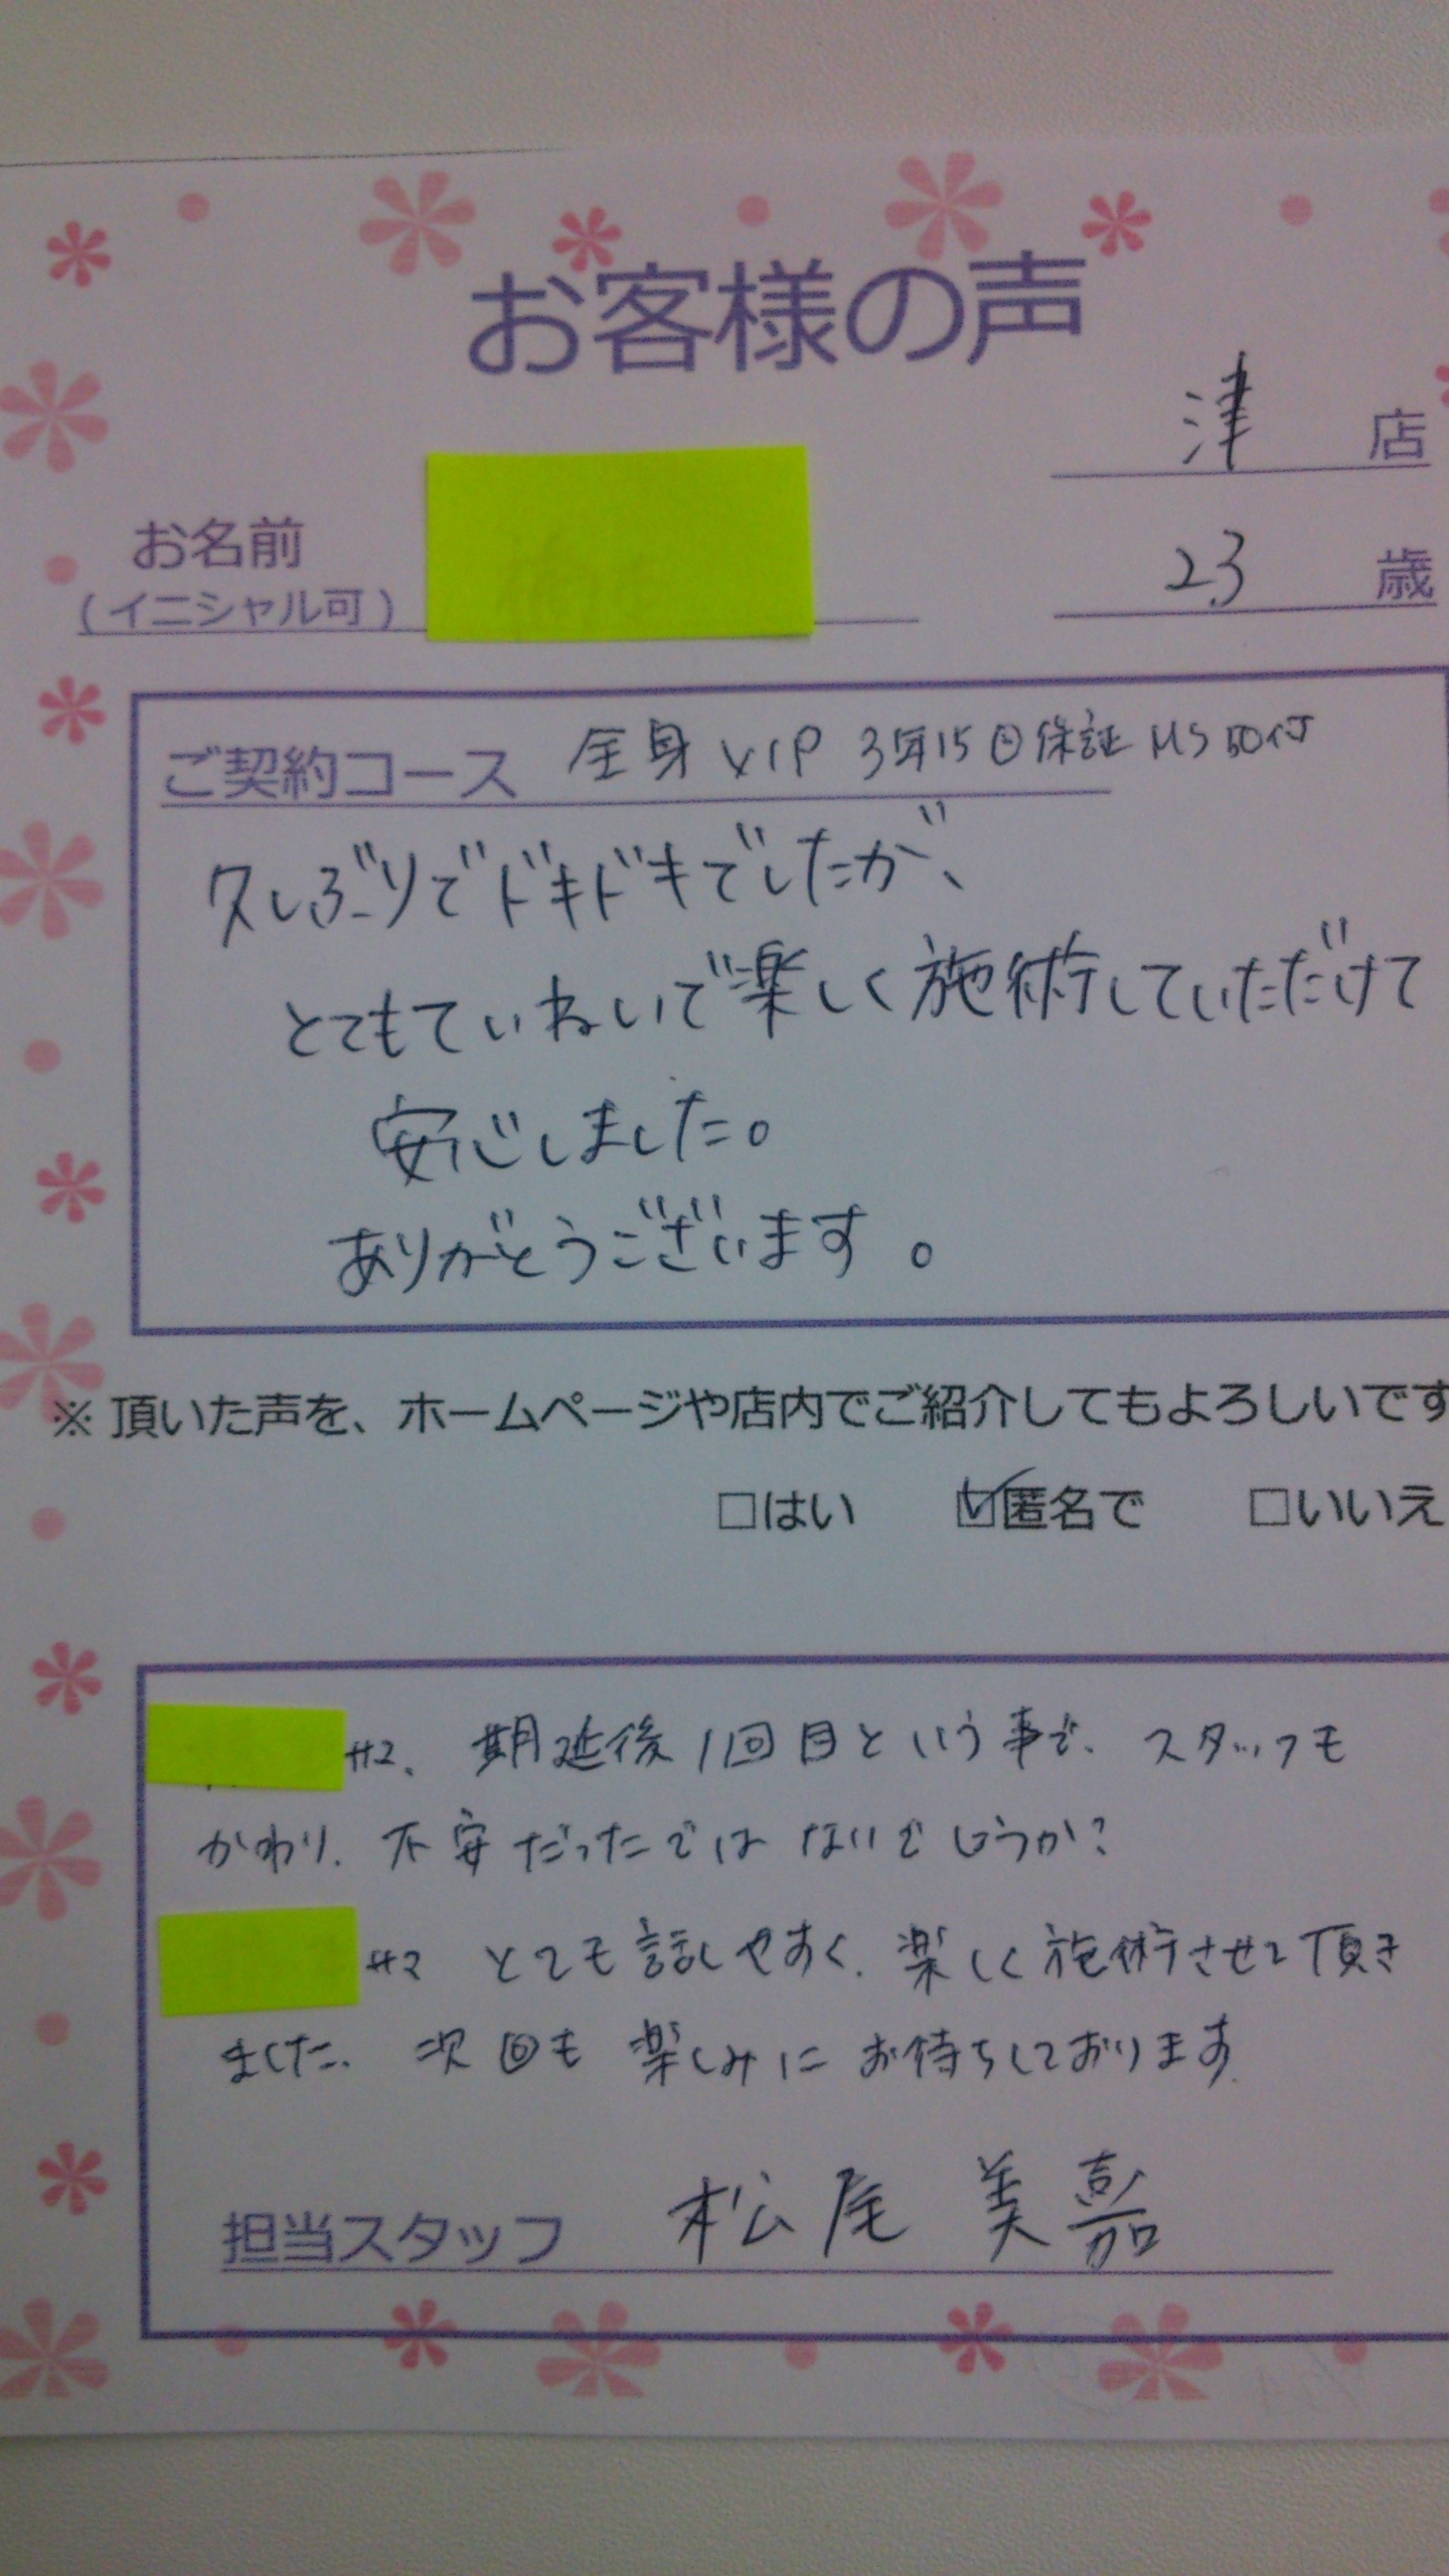 お客様の声
津 店
お名前
(イニシャル可)
23 歳
ご契約コース 全身VIP 3年15回保証 MS 50付
久しぶりでドキドキでしたが、
とてもていねいで楽しく施術していただけて
安心しました。
ありがとうございます。
※頂いた声を、ホームページや店内でご紹介してもよろしいです
□はい ☑匿名で □いいえ
サマ、期延後1回目という事で、スタッフも
かわり、不安だったではないでしょうか?
サマ とても話しやすく、楽しく施術させて頂き
ました。次回も楽しみにお待ちしております。
担当スタッフ 松尾 美嘉